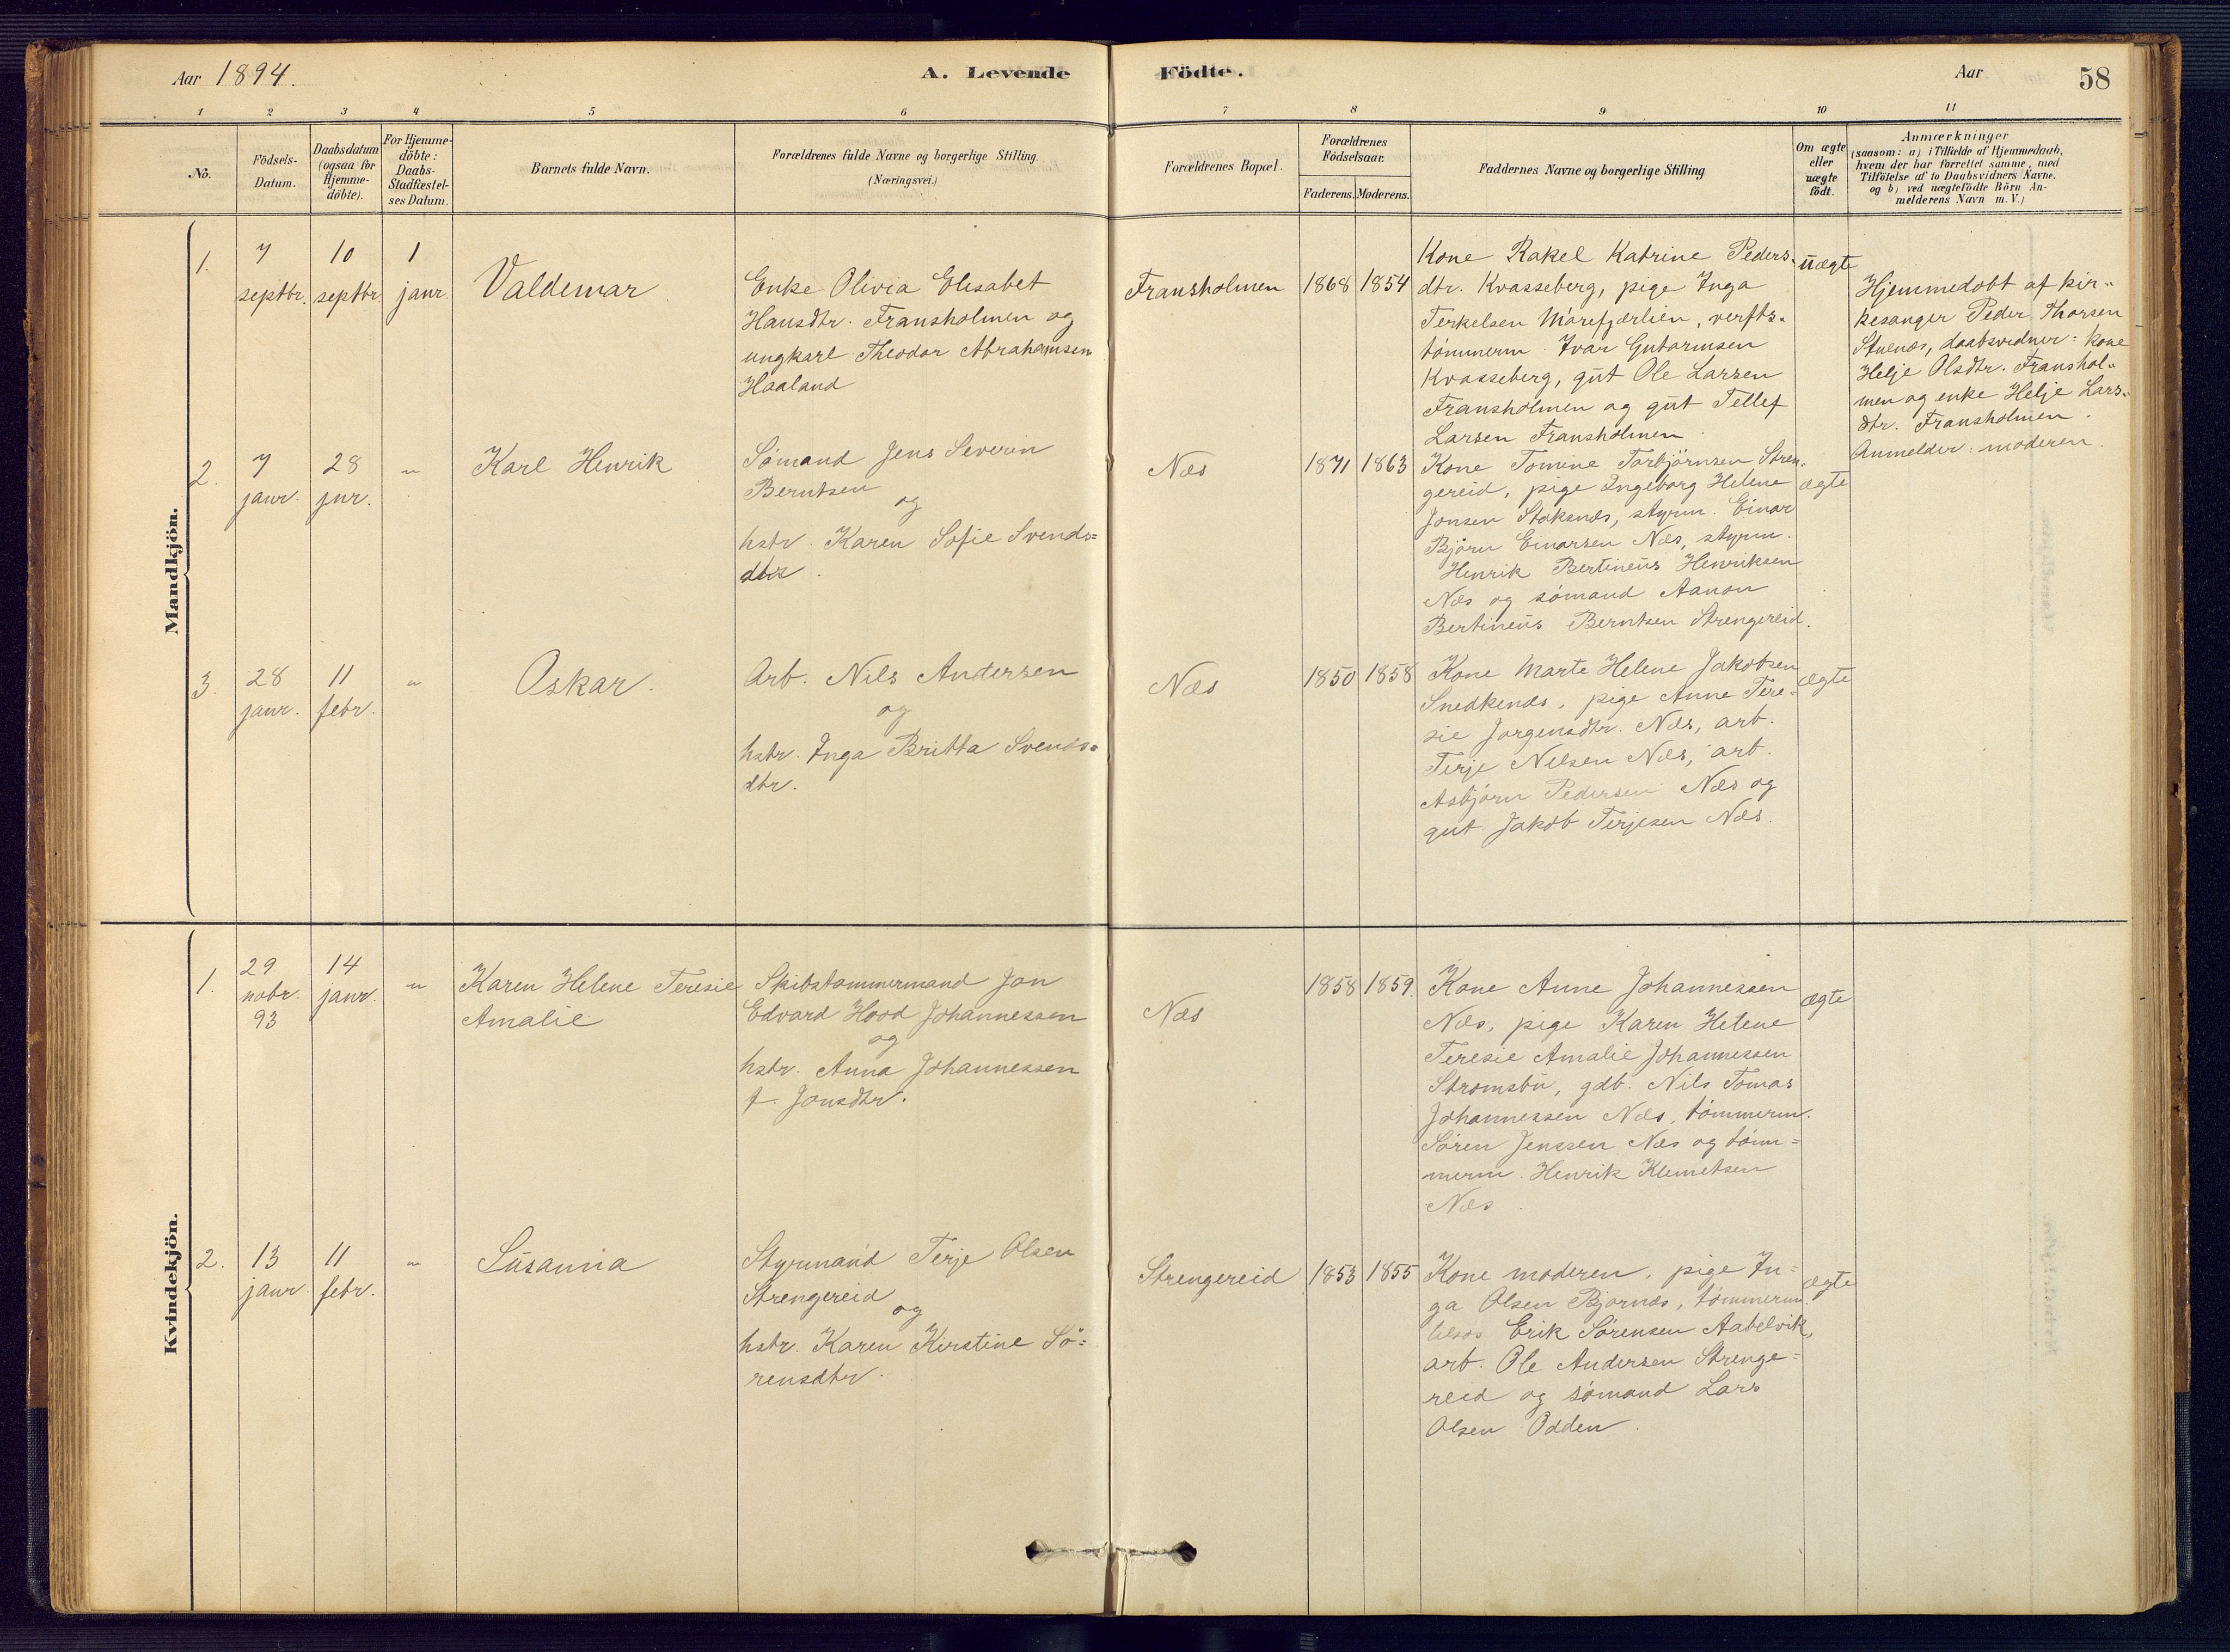 Aar 1894.
A. Levende Födte.
Aar
58
1 2 3 4 5 6 7 8 9 10 11
No.
Födsels-
Datum.
Daabsdatum
(ogsaa for
Hjemme-
döbte).
For Hjemme-
döbte:
Daabs-
Stadfæstel-
ses Datum.
Barnets fulde Navn.
Forældrenes fulde Navne og borgerlige Stilling.
(Næringsvei.)
Forældrenes Bopæl.
Forældrenes
Födselsaar.
Faderens. Moderens.
Faddernes Navne og borgerlige Stilling
Om ægte
eller
uægte
födt.
Anmærkninger
(saasom: a) i Tilfælde af Hjemmedaab,
hvem der har forrettet samme, med
Tilföielse af to Daabsvidners Navne.
og b) ved uægtefödte Börn An-
melderens Navn m. V.)
Mandkjön.
1.
7
septbr.
10
septbr.
1
janr.
Valdemar
Enke Olivia Elisabet
Hansdtr. Fransholmen og
ungkarl Theodor Abrahamsen
Haaland
Fransholmen
1868
1854
Kone Rakel Katrine Peders-
dtr. Kvasseberg, pige Inga
Terkelsen Mörefjærlien, verfts-
tömmerm. Ivar Gutormsen
Kvasseberg, gut Ole Larsen
Fransholmen og gut Tellef
Larsen Fransholmen
uægte
Hjemmedöbt af kir-
kesanger Peder Thorsen
Stuenæs, daabsvidner: kone
Helje Olsdtr. Franshol-
men og enke Helje Lars-
dtr. Fransholmen.
Anmelder: moderen.
2.
7
janr.
28
jnr.
"
Karl Henrik
Sömand Jens Severin
Berntsen
og
hstr. Karen Sofie Svends=
dtr.
Næs
1871
1863
Kone Tomine Torbjörnsen Stren-
gereid, pige Ingeborg Helene
Jonsen Staksnæs, styrm. Einar
Björn Einarsen Næs, styrm.
Henrik Bertineus Henriksen
Næs og sömand Aanon
Bertineus Berntsen Strengereid.
ægte
3.
28
janr.
11
febr.
"
Oskar.
Arb. Nils Andersen
og
hstr. Inga Britta Svends=
dtr.
Næs
1850
1858
Kone Marte Helene Jakobsen
Snedkenæs, pige Anne Tere-
sie Jorgensdtr. Næs, arb.
Terje Nilsen Næs, arb.
Asbjörn Pedersen Næs og
gut Jakob Terjesen Næs.
ægte
Kvindekjön.
1.
29
nobr.
93
14
janr.
"
Karen Helene Teresie
Amalie
Skibstømmermand Jon
Edvard Hood Johannessen
og
hstr. Anna Johannessen
f. Jonsdtr.
Næs
1858
1859.
Kone Anne Johannessen
Næs, pige Karen Helene
Teresie Amalie Johannessen
Strømsbu, gdb. Nils Tomas
Johannessen Næs, tömmerm.
Sören Jenssen Næs og töm=
merm. Henrik Klemetsen
Næs.
ægte
2.
13
janr
11
febr.
"
Susanna
Styrmand Terje Olsen
Strengereid
og
hstr. Karen Kirstine Sö=
rensdtr.
Strengereid
1853
1855
Kone moderen, pige In=
ga Olsen Bjornæs, tömmerm.
Erik Sörensen Aabelvik,
arb. Ole Andersen Strenge=
reid og sömand Lars
Olsen Odden.
ægte